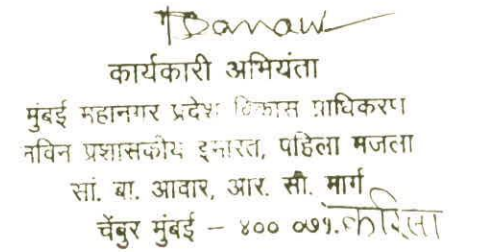 कार्यकारी अभियंता
मुंबई महानगर प्रदेश विकास प्राधिकरण
नविन प्रशासकीय इमारत, पहिला मजला
सां. बा. आवार, आर. सी. मार्ग
चेंबुर मुंबई – ४०० ०७१. करिता